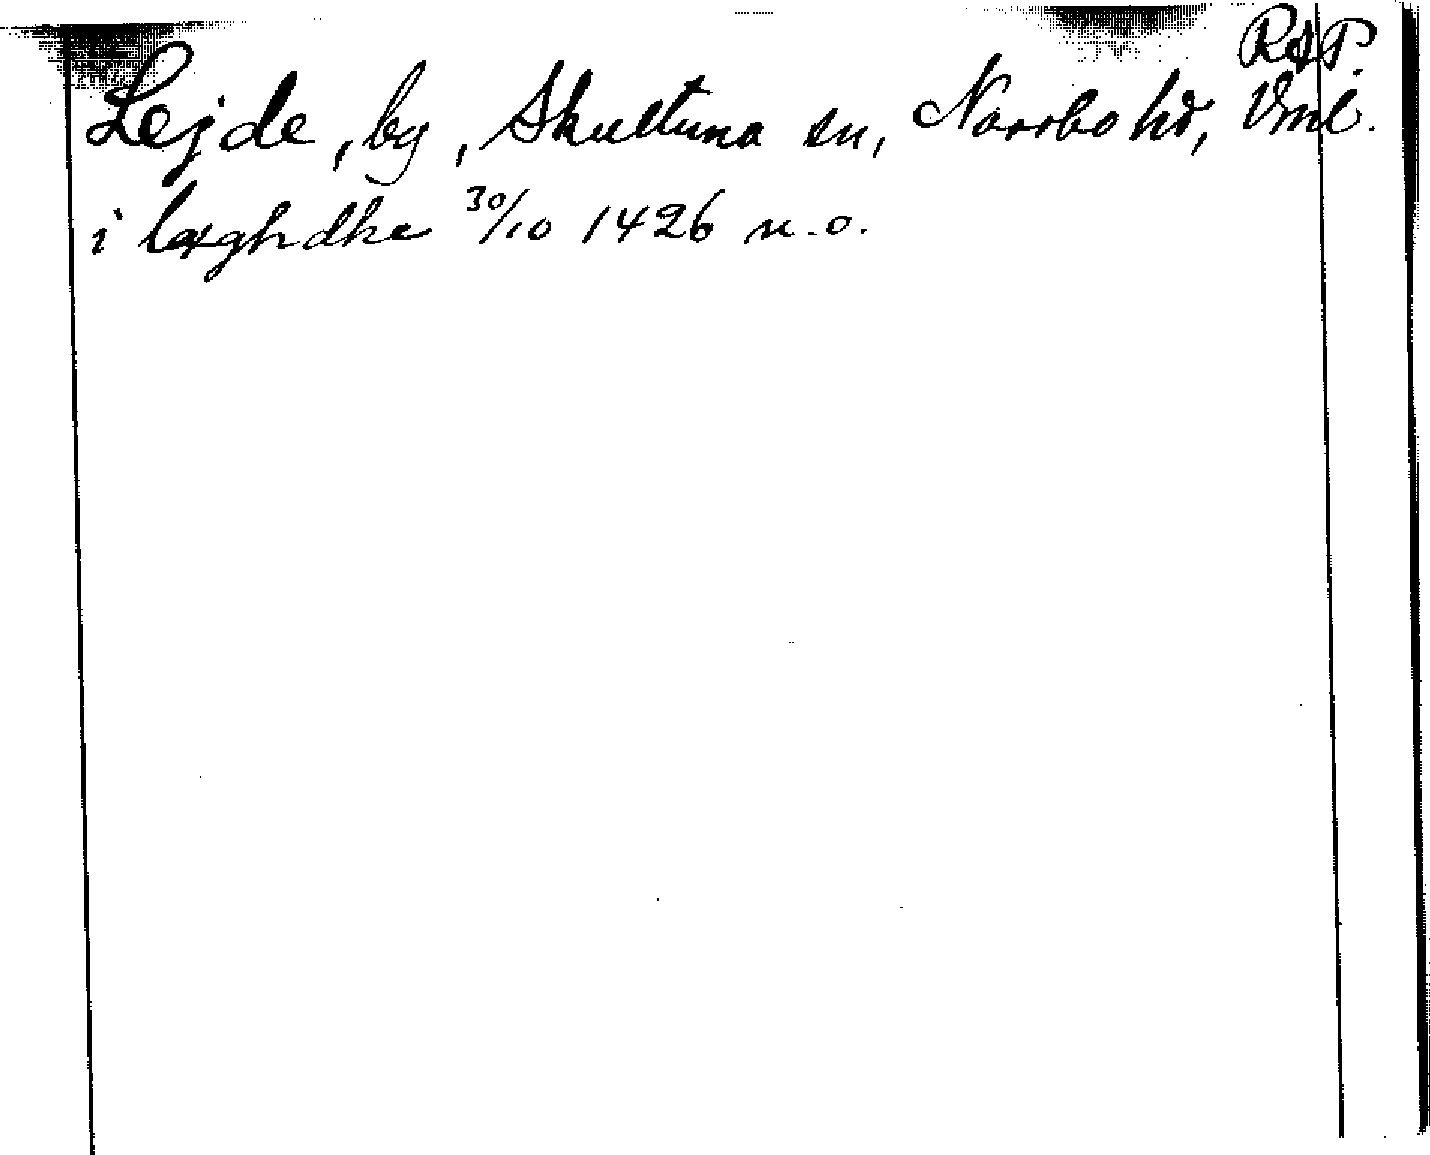 RAP.
Lejde, by, Skultuna sn, Norrbo hd, Vml.
i læghdhe 30/10 1426 n.o.